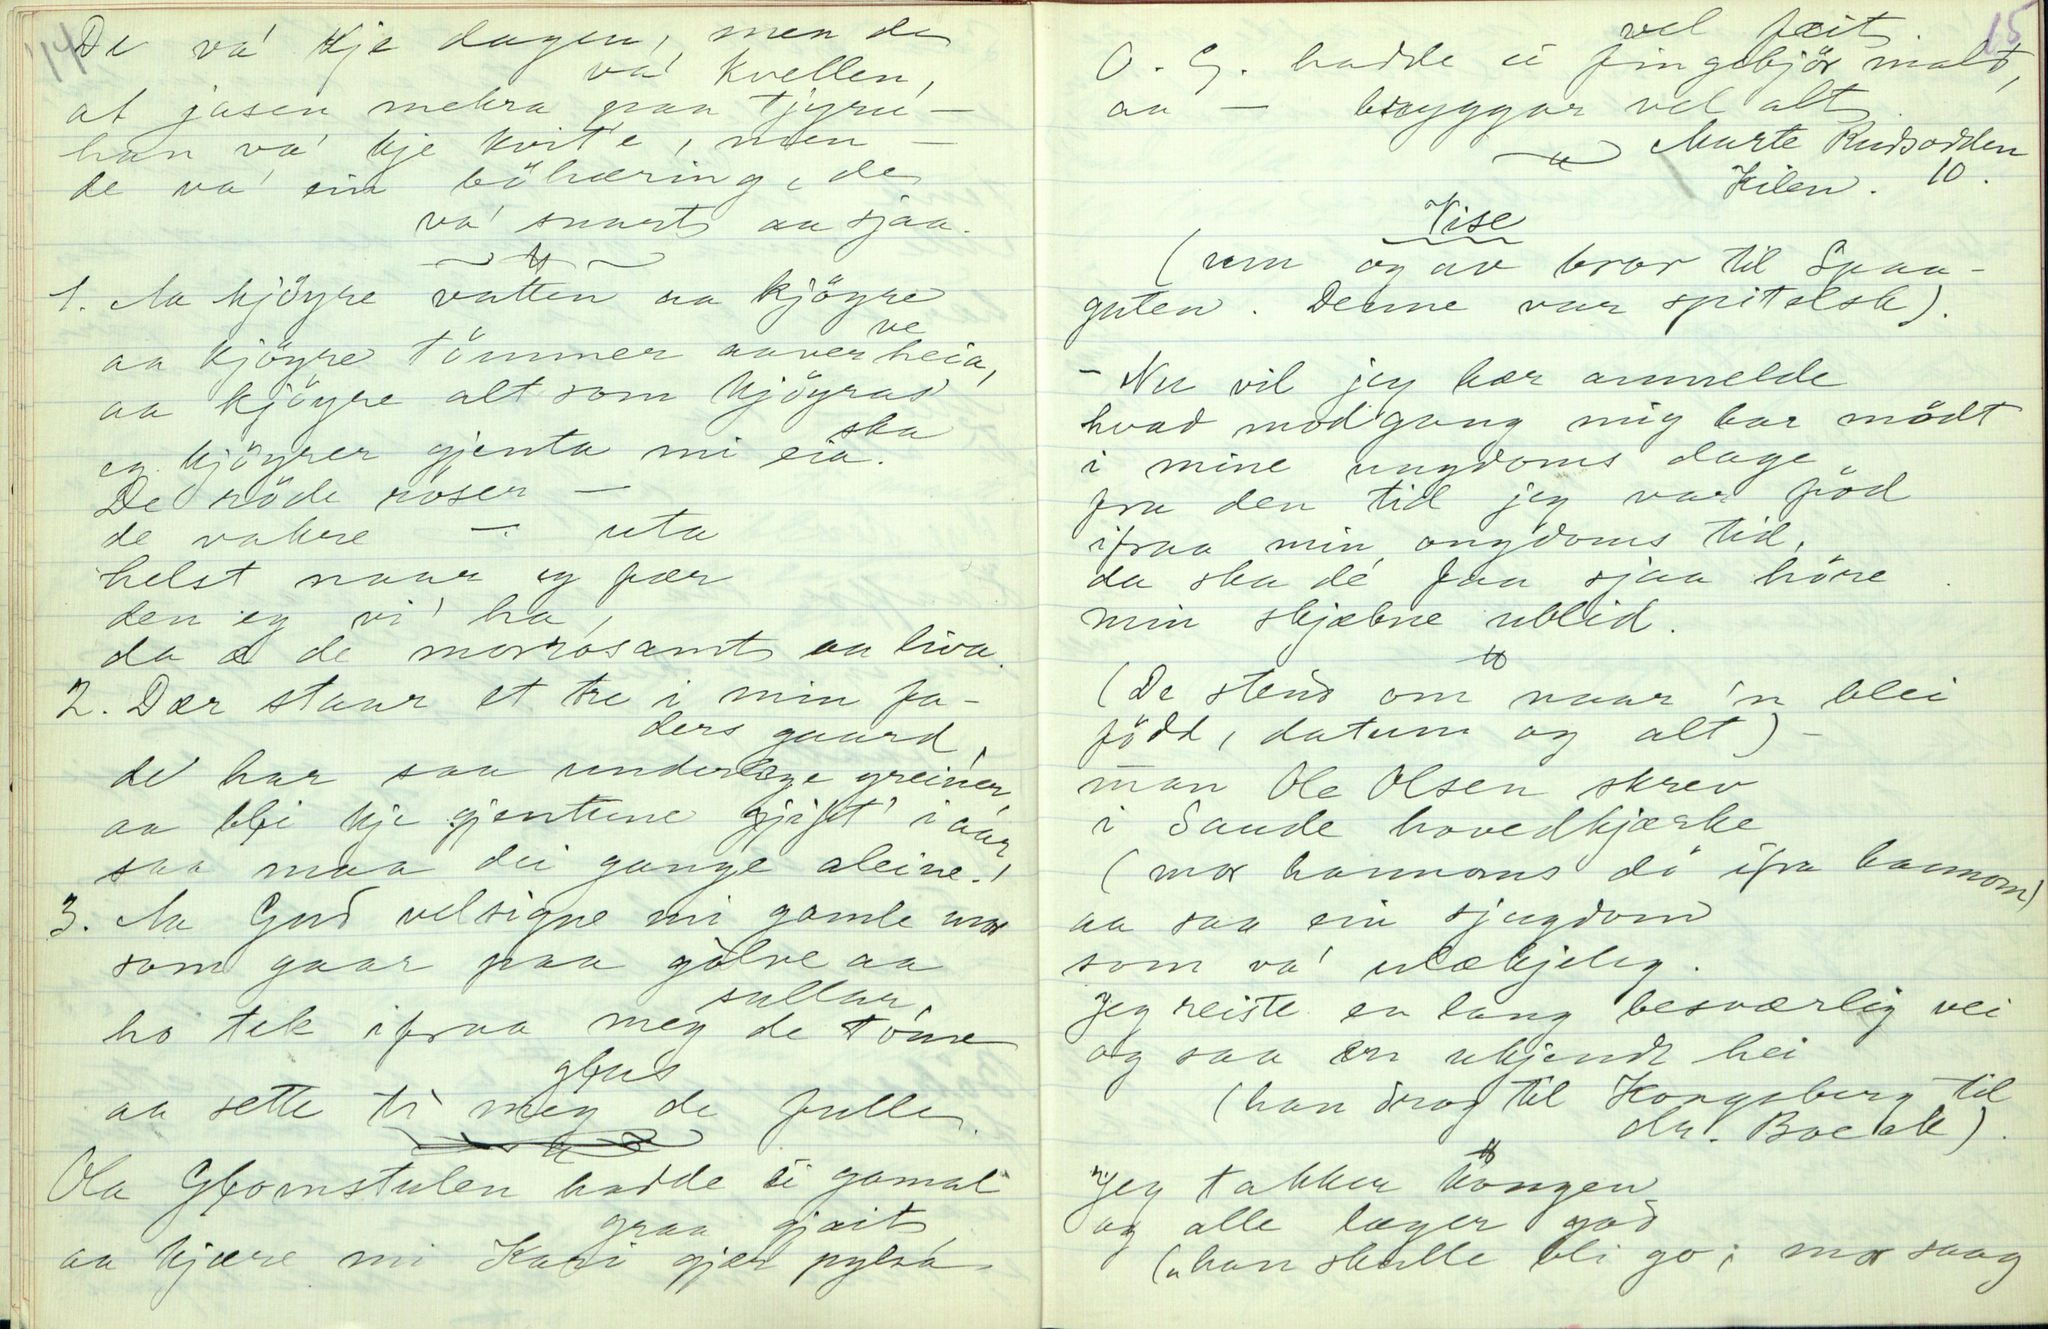 14
De va' kje dagen, men de
va' kvellen,
at jasen mekra paa Tjynn —
han va' kje kvit'e, men —
de va' ein böhæring, de
va' snart aa sjaa.
1. Aa kjöyre vatten aa kjöyre
ve
aa kjöyre tömmer aaver heia,
aa kjöyre alt som kjöyras
ska
eg kjöyrer gjenta mi eia.
De röde roser —
de vakre —. uta
helst naar eg fær
den eg vi' ha,
da æ de morrosamt aa liva.
2. Dær staar et tre i min fa-
ders gaard,
de har saa underlege greiner,
aa bli kje gjentene gjift' i aar,
saa maa dei gange aleine.
3. Aa Gud velsigne mi gamle mor
som gaar paa gölve aa
sullar.
ho tek ifraa meg de tome
glas
aa sette ti meg de fulle.
Ola Glomstulen hadde ei gamal
graa gjeit
aa kjære mi Kari gjær pylsa
15
vel feit.
O. G. hadde ei fingebjör malt,
aa — bryggar vel alt
Marte Rudsodden
Kilen. 10.
Vise
(um og av bror til Spaa-
guten. Denne var spitelsk).
- Nu vil jeg hær anmelde
hvad modgang mig har mödt
i mine ungdoms dage
fra den tid jeg var föd
ifraa min ongdoms tid,
da ska de faa sjaa höre
min skjæbne ublid.
(De stend om naar 'n blei
född, datum og alt) -
man Ole Olsen skrev
i Saude hovedkjærke
(mor hannoms dö ifra hannom)
aa saa ein sjugdom
som va' ulækjeleg.
Jeg reiste en lang besværlig vei
og saa en ukjendt hei
(han drog til Kongsberg til
dr. Boeck).
"Jeg takker kongen
og alle læger god
("han skulle bli go; mor saag